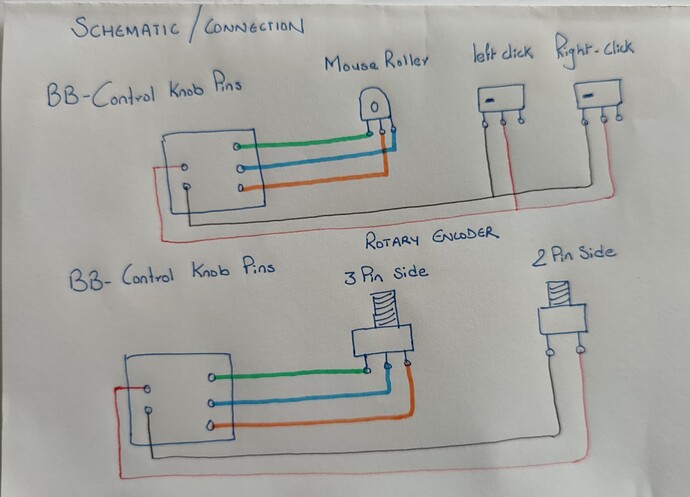 SCHEMATIC / CONNECTION
Mouse Roller
left click
Right-click
BB-Control Knob Pins
ROTARY ENCODER
BB- Control Knob Pins
3 Pin side
2 Pin side